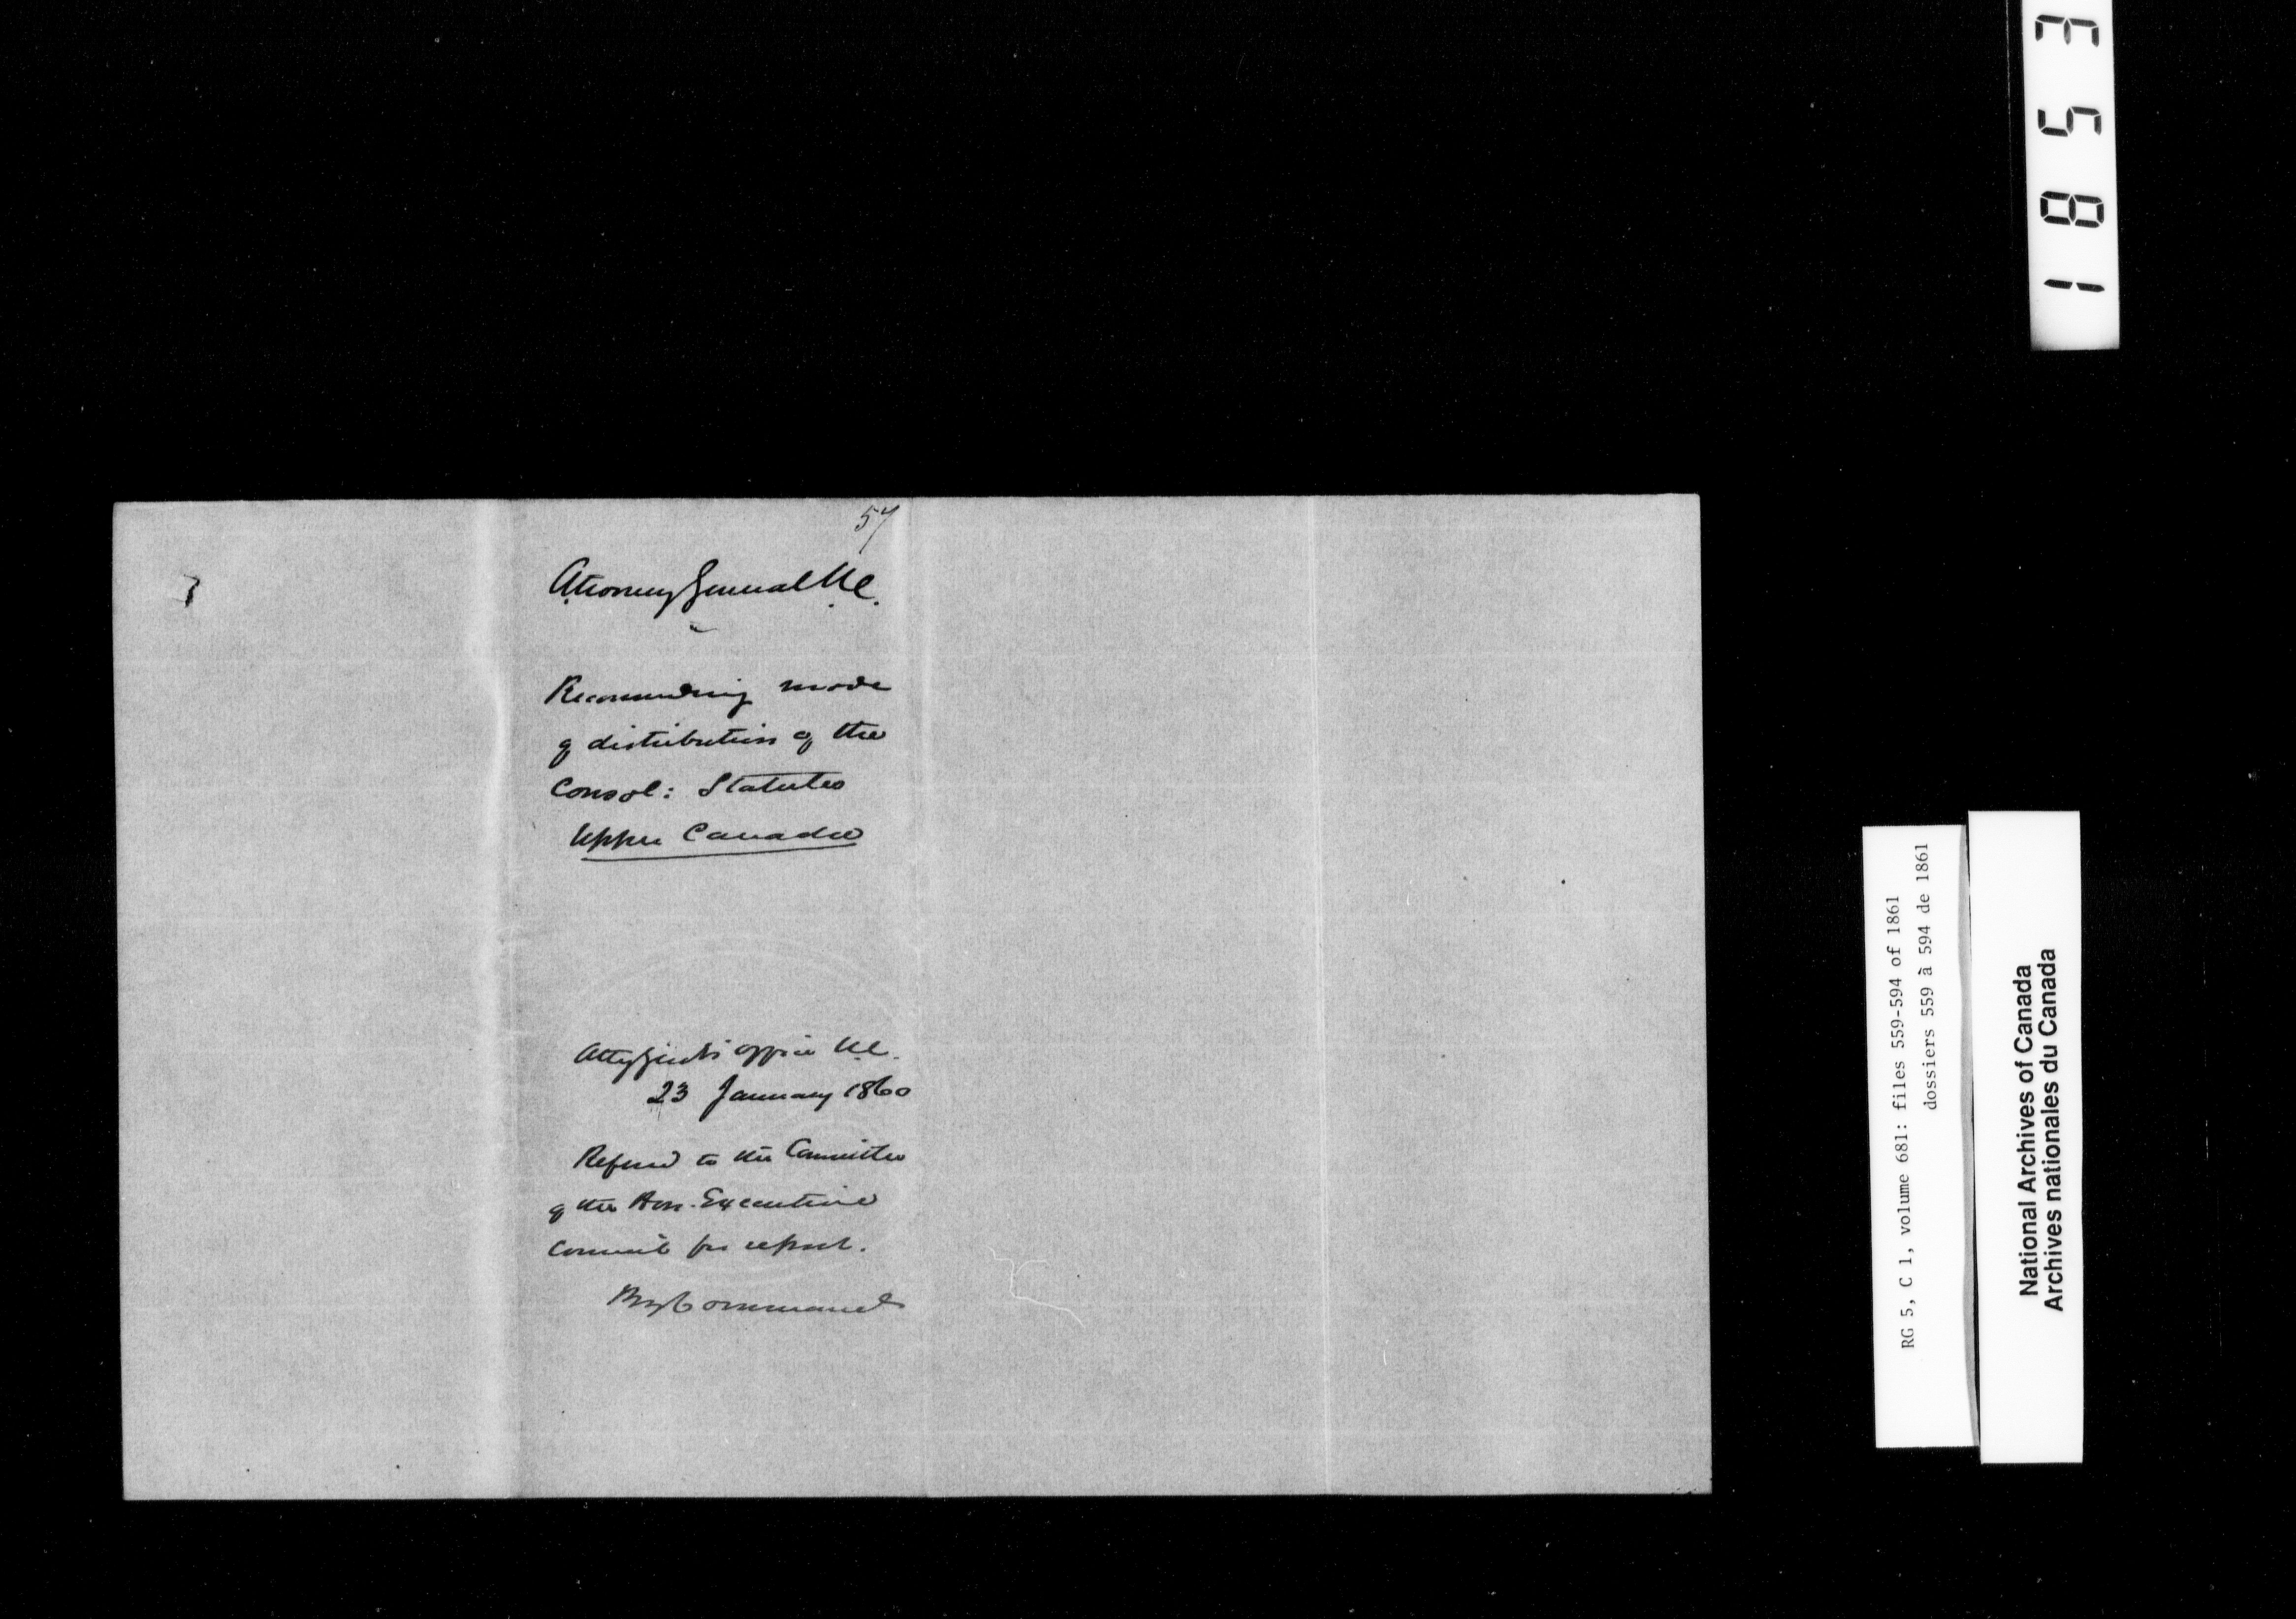 57
Attorney General U.C.
Recommending mode
of distribution of the
Consol: Statutes
Upper Canada
Atty Genl's Office U.C.
23 January 1860
Referred to the Committee
of the Hon. Executive
Council for report.
By Command
1853
RG 5, C 1, volume 681: files 559-594 of 1861
dossiers 559 à 594 de 1861
National Archives of Canada
Archives nationales du Canada